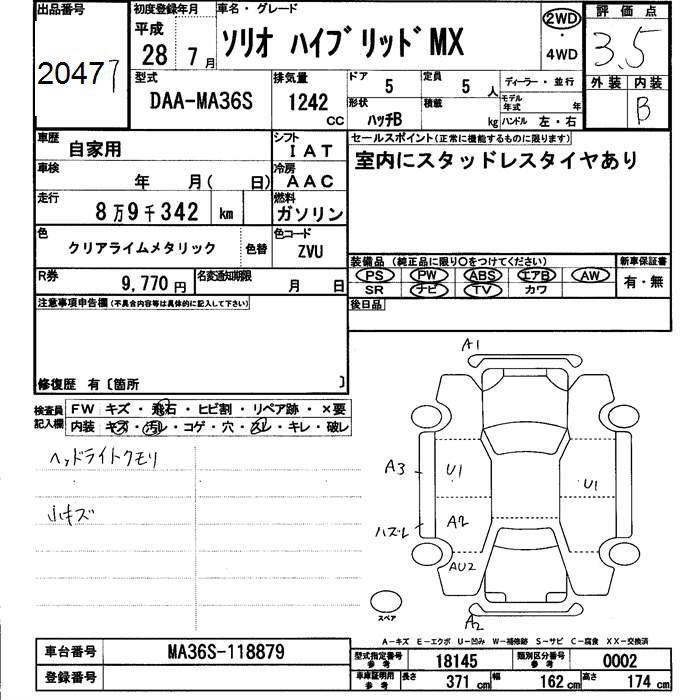 出品番号 初度登録年月 車名・グレード 2WD 評価点
20477 平成 28 7月 ソリオ ハイブリッドMX ・ 4WD 3.5
型式 排気量 ドア 5 定員 5人 ディーラー・並行 外装 内装
DAA-MA36S 1242 CC 形状 ハッチB 積載 kg モデル年式 年 ハンドル 左・右 B
車歴 自家用 シフト IAT セールスポイント(正常に機能するものに限ります)
車検 年 月( 日) 冷房 AAC 室内にスタッドレスタイヤあり
走行 8万9千342 km 燃料 ガソリン
色 クリアライムメタリック 色替 色コード ZVU
装備品(純正品に限り〇をつけてください) 新車保証書
R券 9,770円 名変通知期限 月 日 PS PW ABS エアB AW 有・無
SR ナビ TV カワ
注意事項申告欄(不具合内容等は具体的に記入して下さい) 後日品
修復歴 有〔箇所 〕
検査員記入欄 FW キズ・飛石・ヒビ割・リペア跡・×要
内装 キズ・汚レ・コゲ・穴・スレ・キレ・破レ
ヘッドライトクモリ
小キズ
A1
A3 U1 U1
ハズレ A2
AU2
スペア A2
A-キズ E-エクボ U-凹み W-補修跡 S-サビ C-腐食 XX-交換済
車台番号 MA36S-118879 型式指定番号 参考 18145 類別区分番号 参考 0002
登録番号 車庫証明用 参考 長さ 371cm 幅 162cm 高さ 174cm